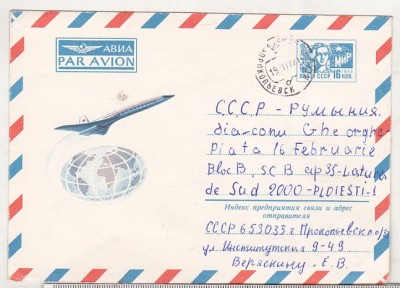 АВИА
PAR AVION
ПРОКОПЬЕВСК
МИР
СССР 16 КОП.
СССР - РУМЫНИЯ.
dia-conu Gheorghe
Piata 16 Februarie
Bloc B, SC B ap 35-Latura
de Sud 2000-PLOIESTI-1
Индекс предприятия связи и адрес
отправителя
СССР 653033 г. Прокопьевск
ул. Институтская 9-49
Верякину. Е. В.